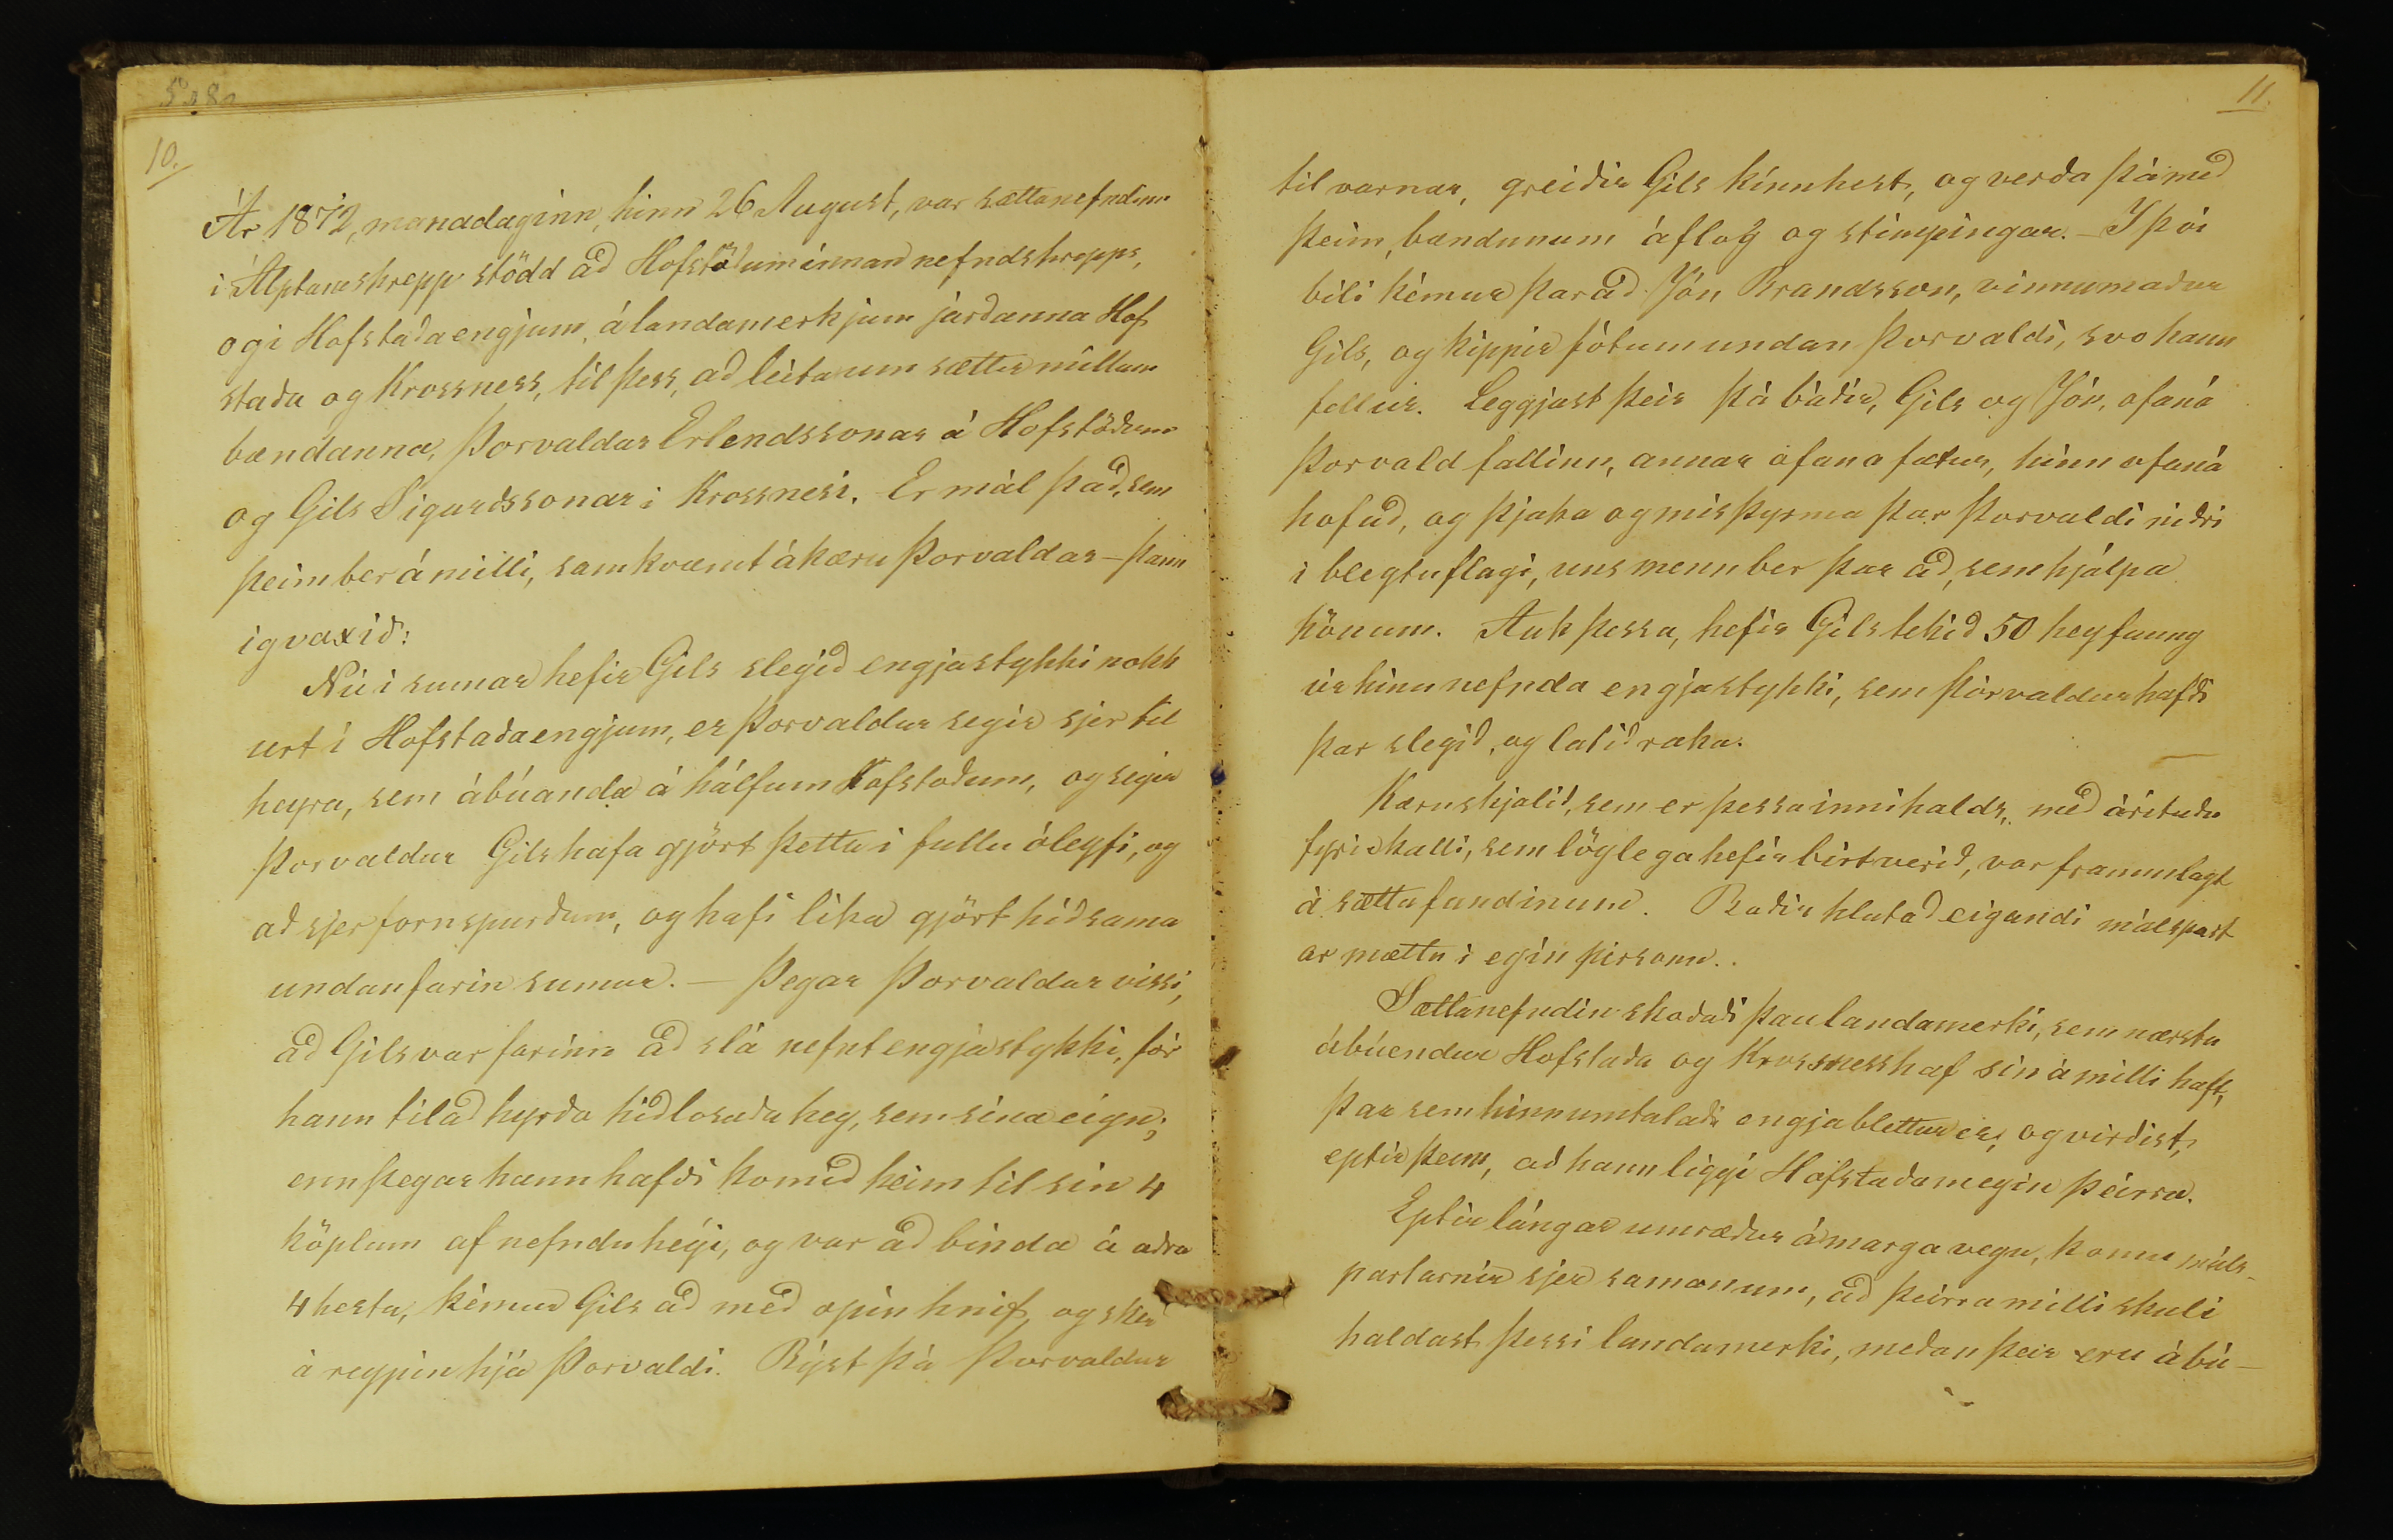 10.
Ár 1872, manadaginn, hinn 26 August, var sættanefndin
i Álptaneshrepp stödd að Hofstöðum innan nefndshrepps,
og i Hofstaðaengjum, á landamerkjum jarðanna Hof
staða og Krossness, til þess, að leita um sættir millum
bændanna, Þorvaldar Erlendssonar á Hofstöðum
og Gils Sigurdssonar i Krossnesi. Er mál það, sem
þeim ber á milli, samkvæmt ákæru Þorvaldar – þann
ig vaxið:
Nú i sumar hefir Gils slegið engjastykki nokk
urt i Hofstaðaengjum, er Þorvaldur segir sjer til
heyra, sem ábúanda á hálfum Hofstoðum, og segir
Þorvaldur Gils hafa gjört þetta i fullu óleyfi, og
að sjer fornspurðum, og hafi lika gjört hið sama
undanfarin sumur. – Þegar Þorvaldur vissi,
að Gils var farinn að slá nefnt engjastykki, fór
hann til að hyrða hið losaða hey, sem sina eign;
enn þegar hann hafði komið heim til sin 4
köplum af nefndu heýi, og var að binda á aðra
4 hesta, kémur Gils að með opin hnif, og sker
á reypin hjá Þorvaldi. Býst þá Þorvaldur
11.
til varnar, greiðir Gils kinnhest, og verða þá með
þeim, bændunum áflog og stimpingar. – I þvi
bili kémur þar að Jón Brandsson, vinnumaður
Gils, og kippir fótum undan Þorvaldi, svo hann
fellur. Leggjast þeir þá báðir, Gils og Jón, ofaná
Þorvald fallinn, annar ofaná fætur, hinn ofaná
hofuð, og þjaka og misþyrma þar Þorvaldi niðri
i bleytuflagi, uns menn ber þar að, sem hjálpa
hönum. Auk þessa, hefir Gils tekið 50 heyfaung
úr hinu nefnda engjastykki, sem Þórvaldur hafði
þar slegið, og latið raka.
Kæruskjalið, sem er þessa innihalds, með árituðu
fyrirkalli, sem löglega hefir birt verið, var frammlagt
á sættafundinum. Baðir hlutaðeigandi málspart
ar mættu i egin personu.
Sættanefndin skoðaði þau landamerki, sem næstu
ábúendur Hofstaða og Krossness haf sin á milli haft,
þar sem hinn umtalaði engjablettur er, og virðist,
eptir þeim, að hann liggi Hofstaðamegin þeirra.
Eptir lángar umræður á marga vegu, komu máls-
partarnir sjer samanum, að þeirra milli skuli
haldast þessi landamerki, meðan þeir eru ábú-